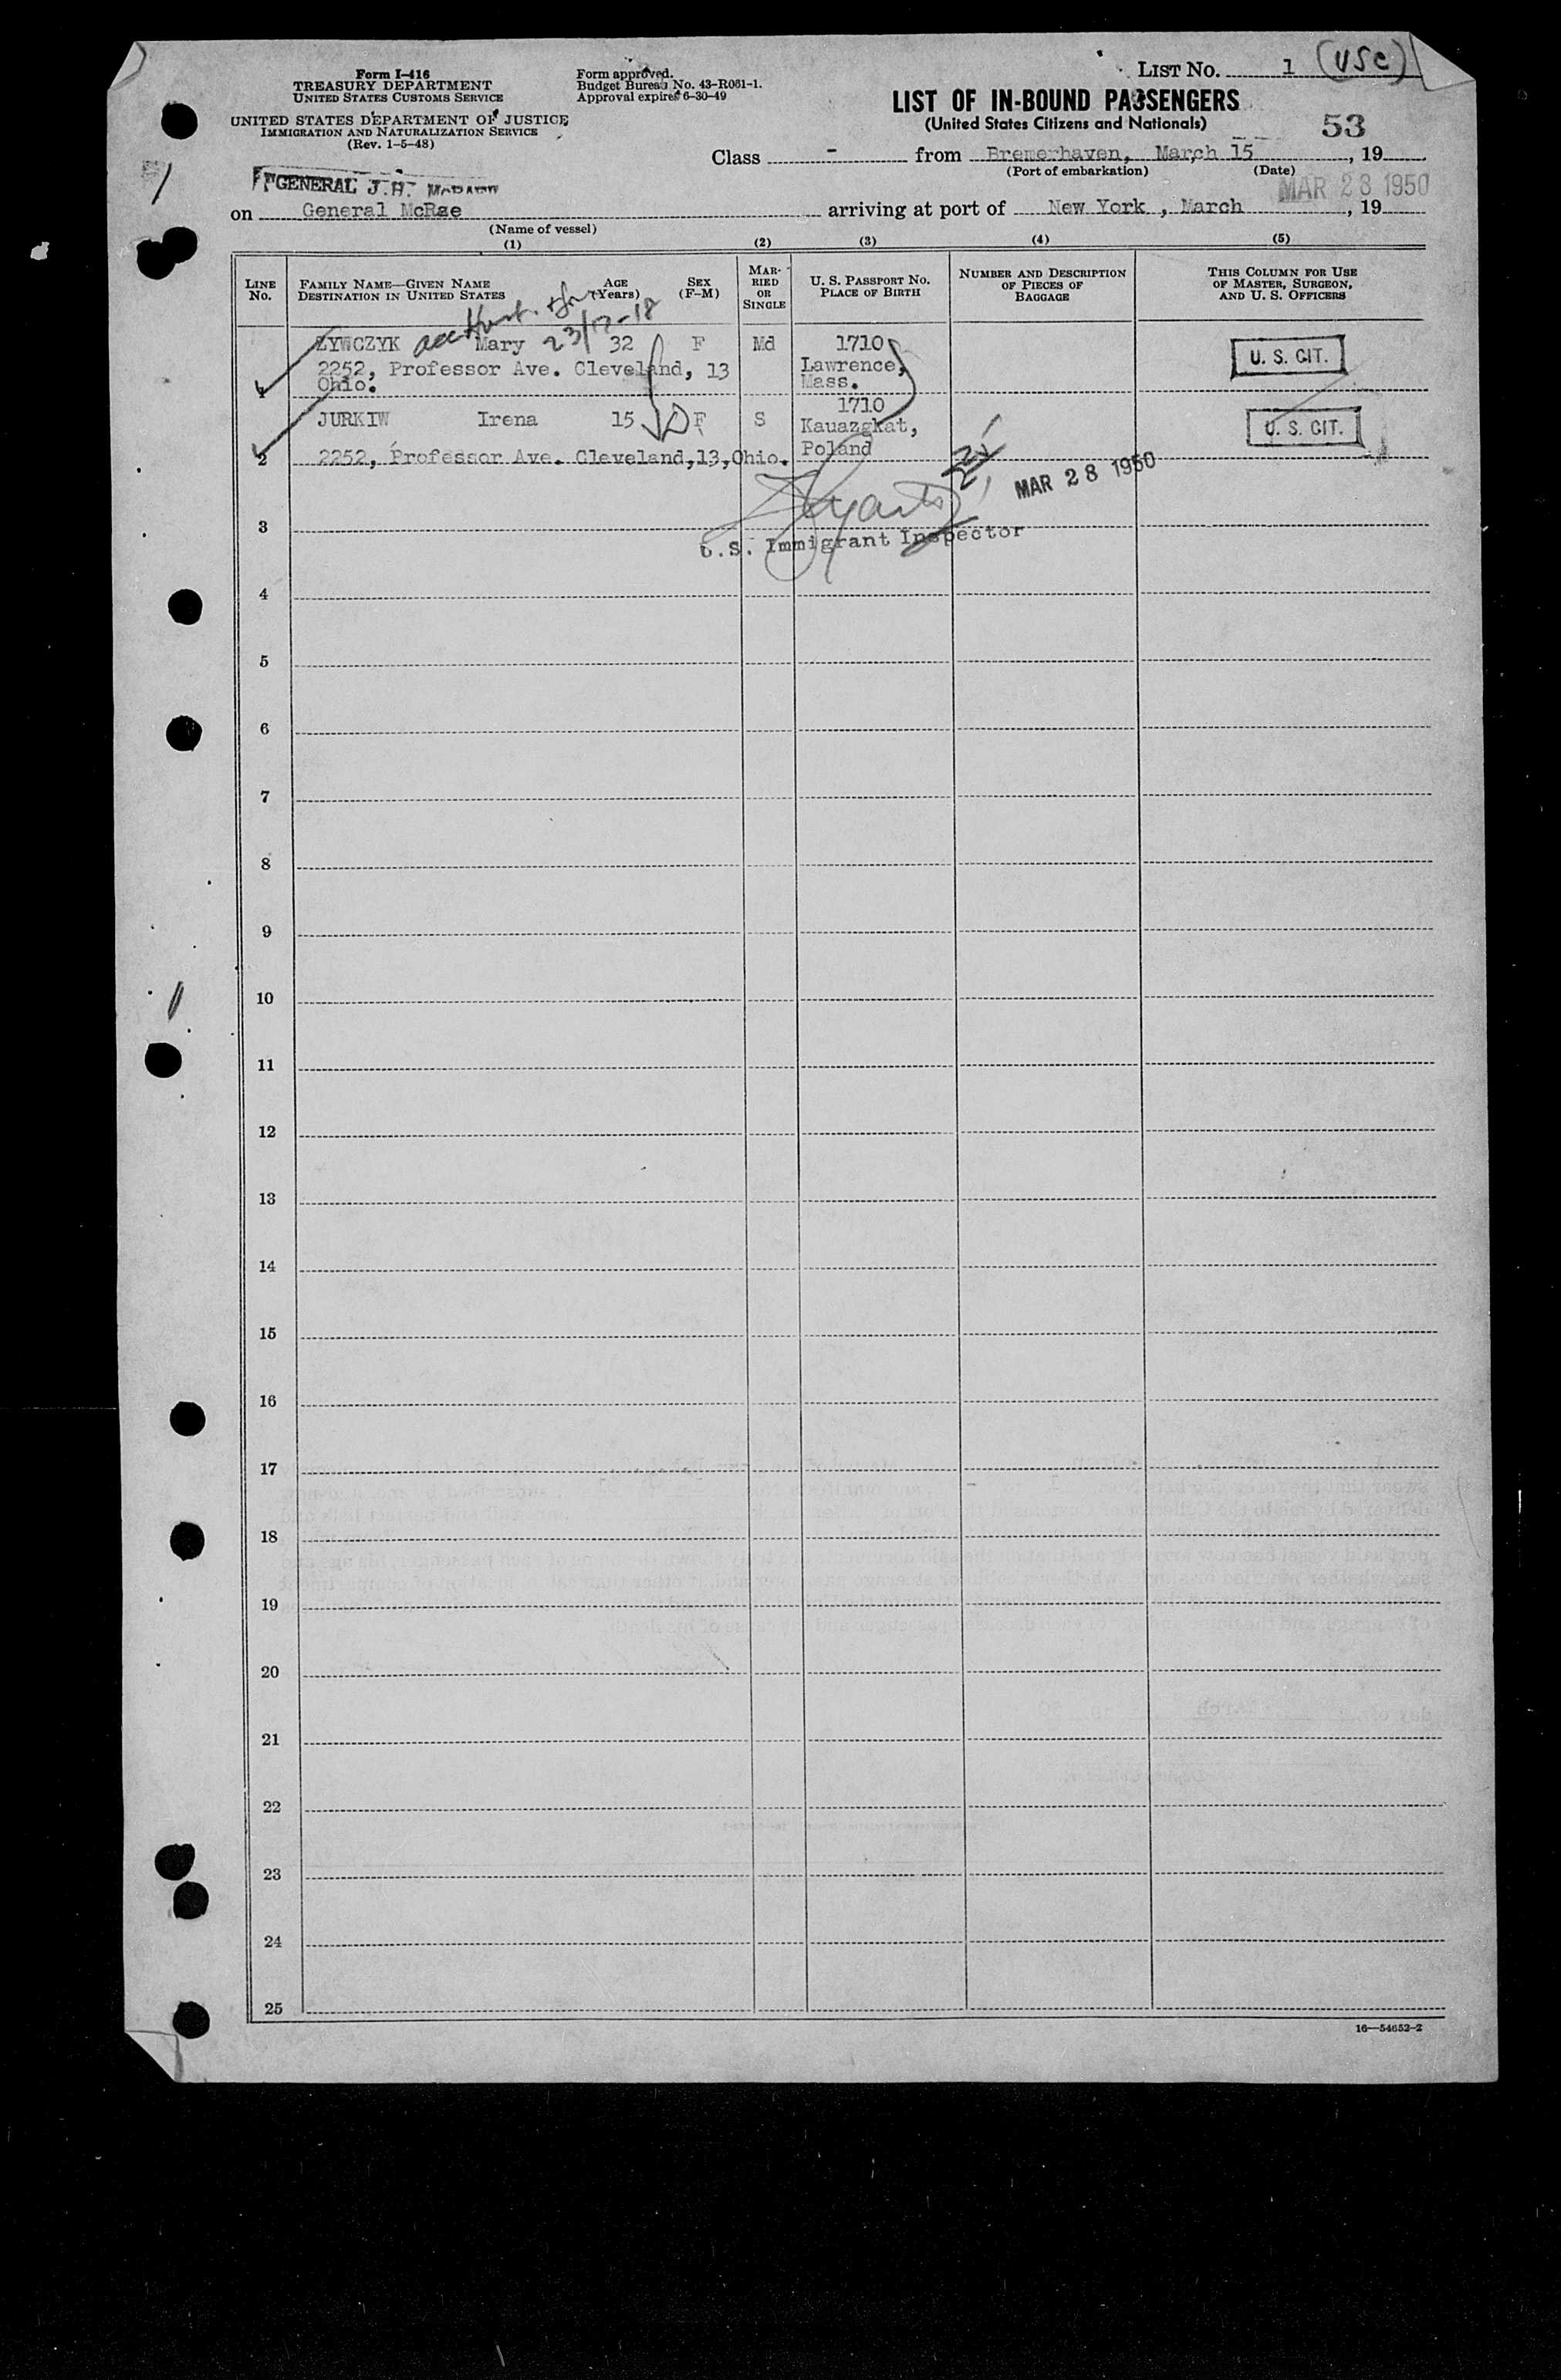 Form I-416
TREASURY DEPARTMENT
UNITED STATES CUSTOMS SERVICE
UNITED STATES DEPARTMENT OF JUSTICE
IMMIGRATION AND NATURALIZATION SERVICE
(Rev. 1-5-48)
Form approved.
Budget Bureau No. 43-R061-1.
Approval expires 6-30-49
LIST No. 1 (USC)
LIST OF IN-BOUND PASSENGERS
(United States Citizens and Nationals)
53
Class - from Bremerhaven, March 15, 19
(Port of embarkation) (Date)
GENERAL J.H. McRAE
MAR 28 1950
on General McRae arriving at port of New York , March , 19
(Name of vessel)
(1) (2) (3) (4) (5)
LINE No.
FAMILY NAME—GIVEN NAME
DESTINATION IN UNITED STATES
AGE (Years)
SEX (F-M)
MARRIED OR SINGLE
U. S. PASSPORT NO.
PLACE OF BIRTH
NUMBER AND DESCRIPTION OF PIECES OF BAGGAGE
THIS COLUMN FOR USE OF MASTER, SURGEON, AND U. S. OFFICERS
23/12-18
ZYWCZYK Mary 32 F Md 1710 U. S. CIT.
2252, Professor Ave. Cleveland, 13 Lawrence,
1 Ohio. Mass.
1710
JURKIW Irena 15 F S Kauazgkat, U. S. CIT.
2 2252, Professor Ave. Cleveland,13,Ohio. Poland
MAR 28 1950
3
U.S. Immigrant Inspector
4
5
6
7
8
9
10
11
12
13
14
15
16
17
18
19
20
21
22
23
24
25
16—54652-2